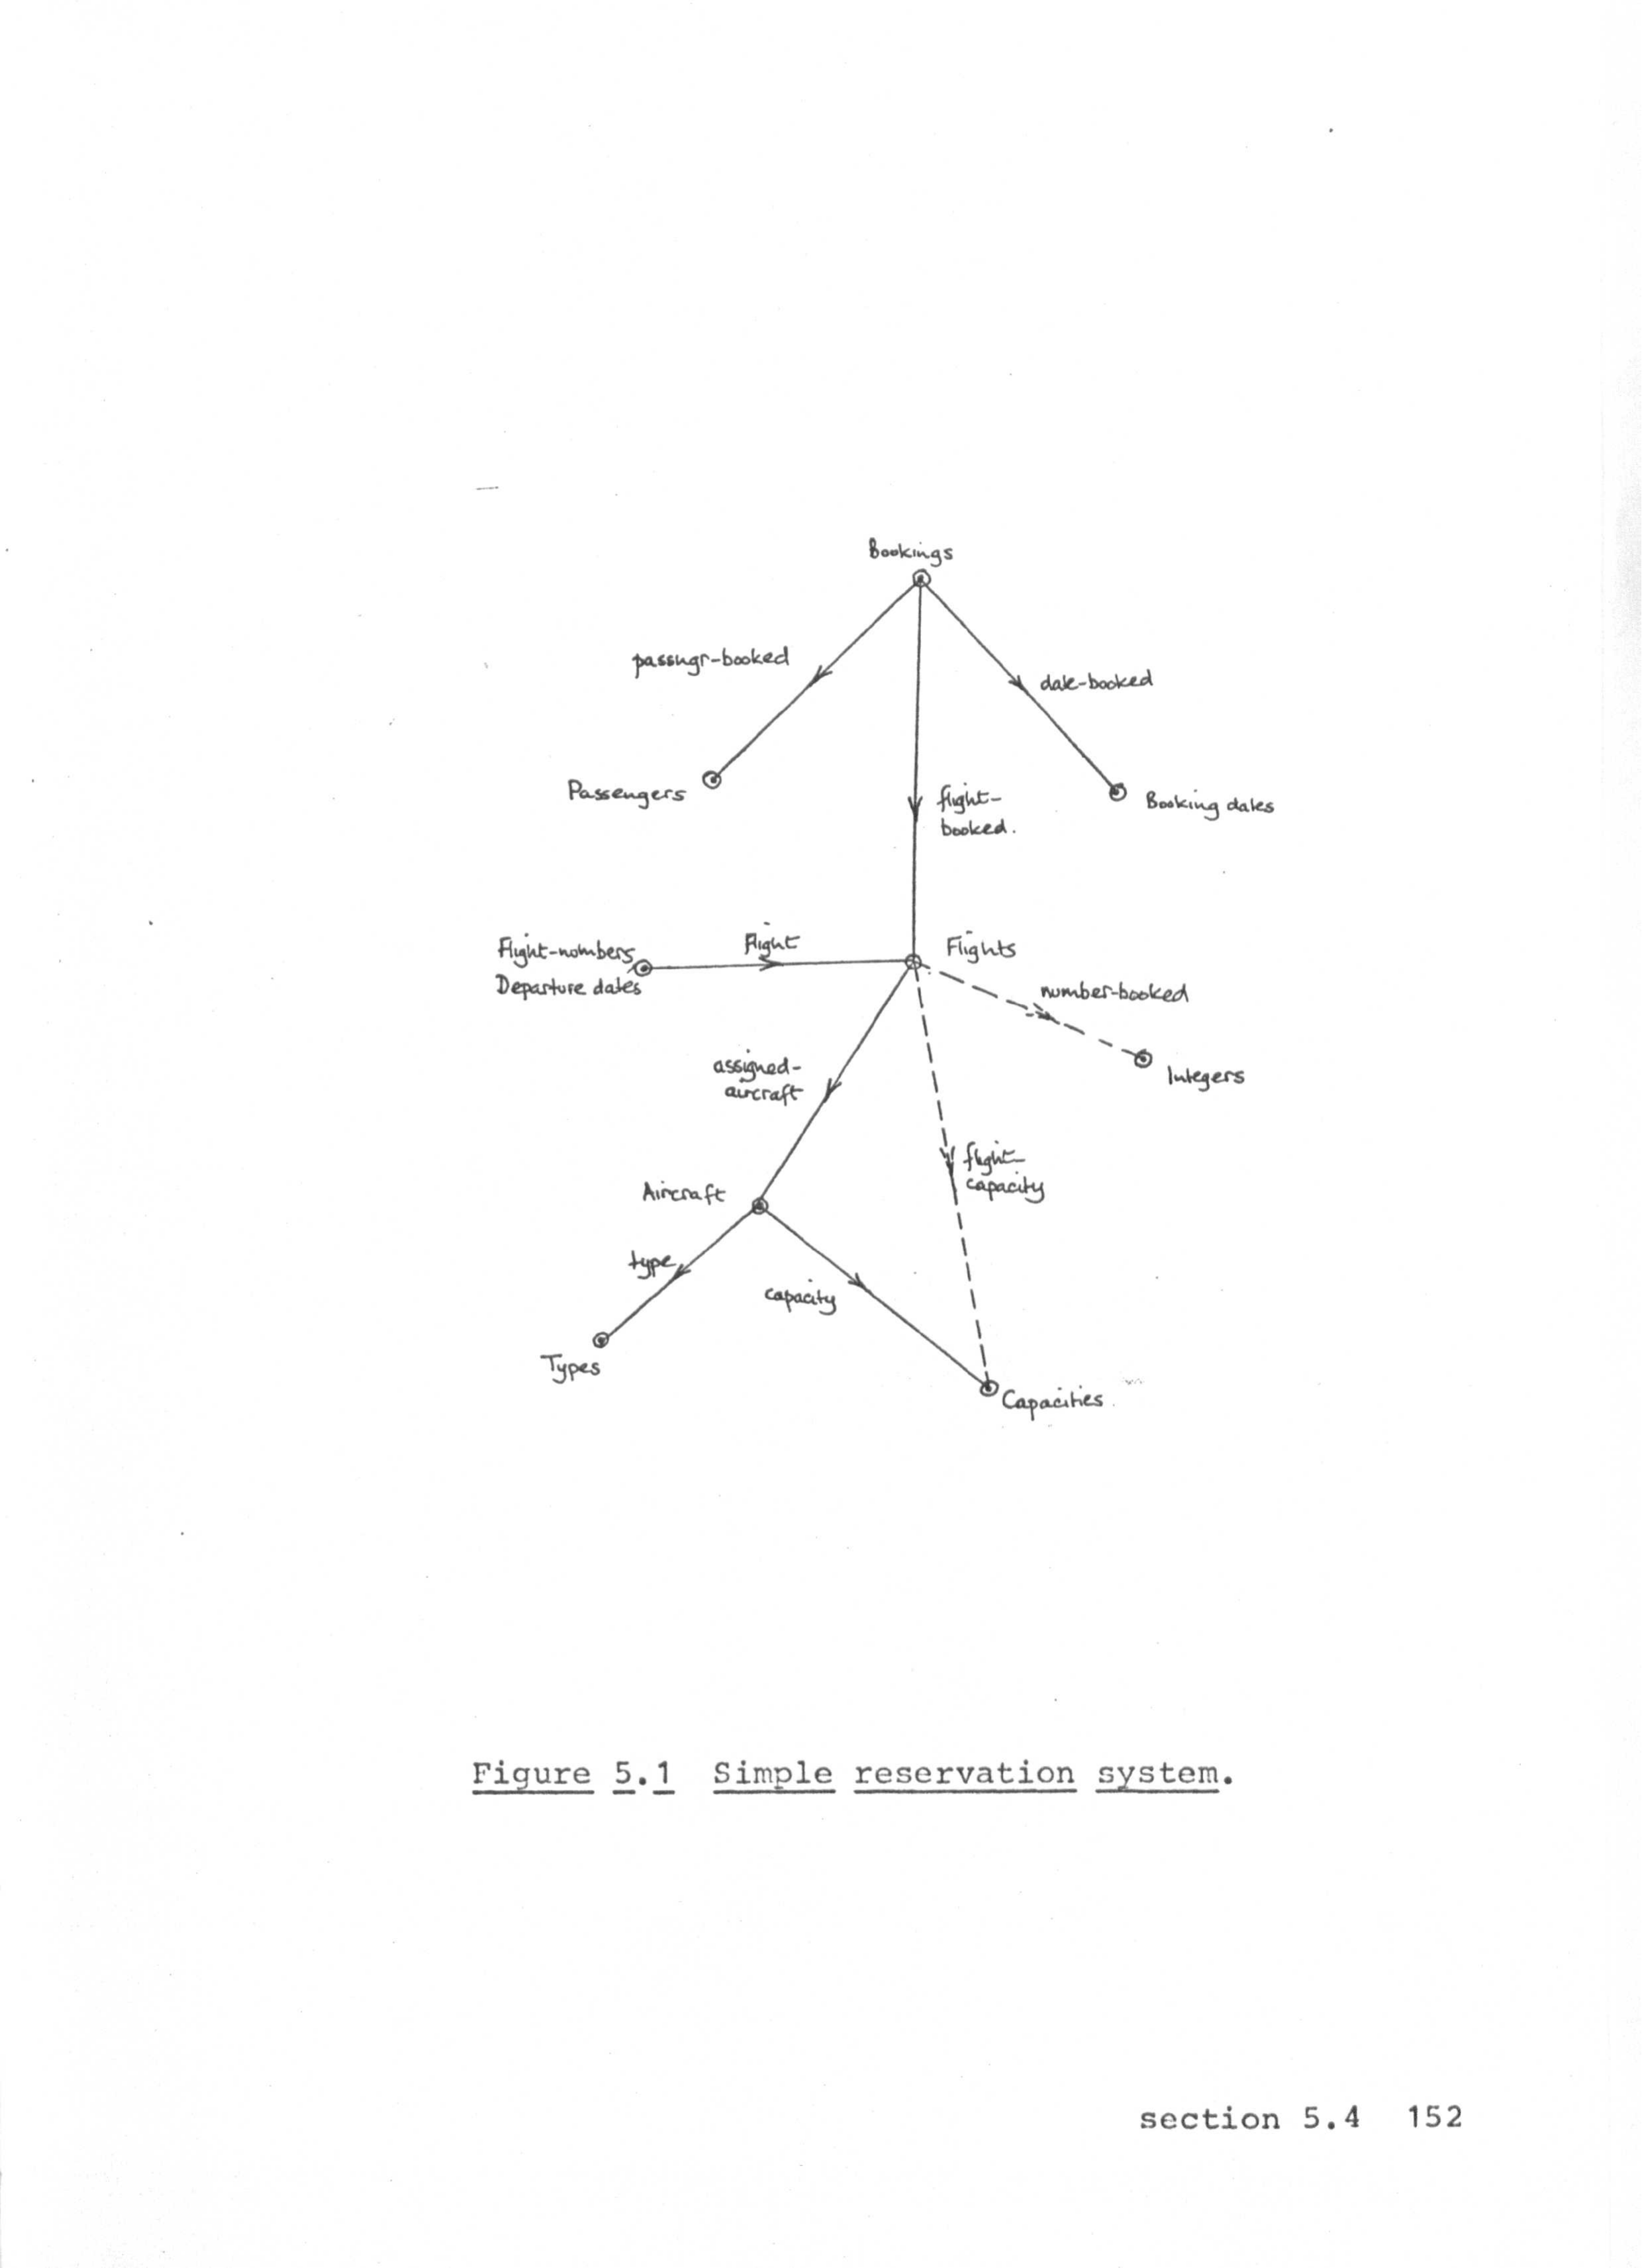 Bookings
passngr-booked
date-booked
Passengers
flight-
booked.
Booking dates
Flight-numbers
Departure dates
flight
Flights
number-booked
Integers
assigned-
aircraft
flight-
capacity
Aircraft
type
capacity
Types
Capacities
Figure 5.1 Simple reservation system.
section 5.4 152